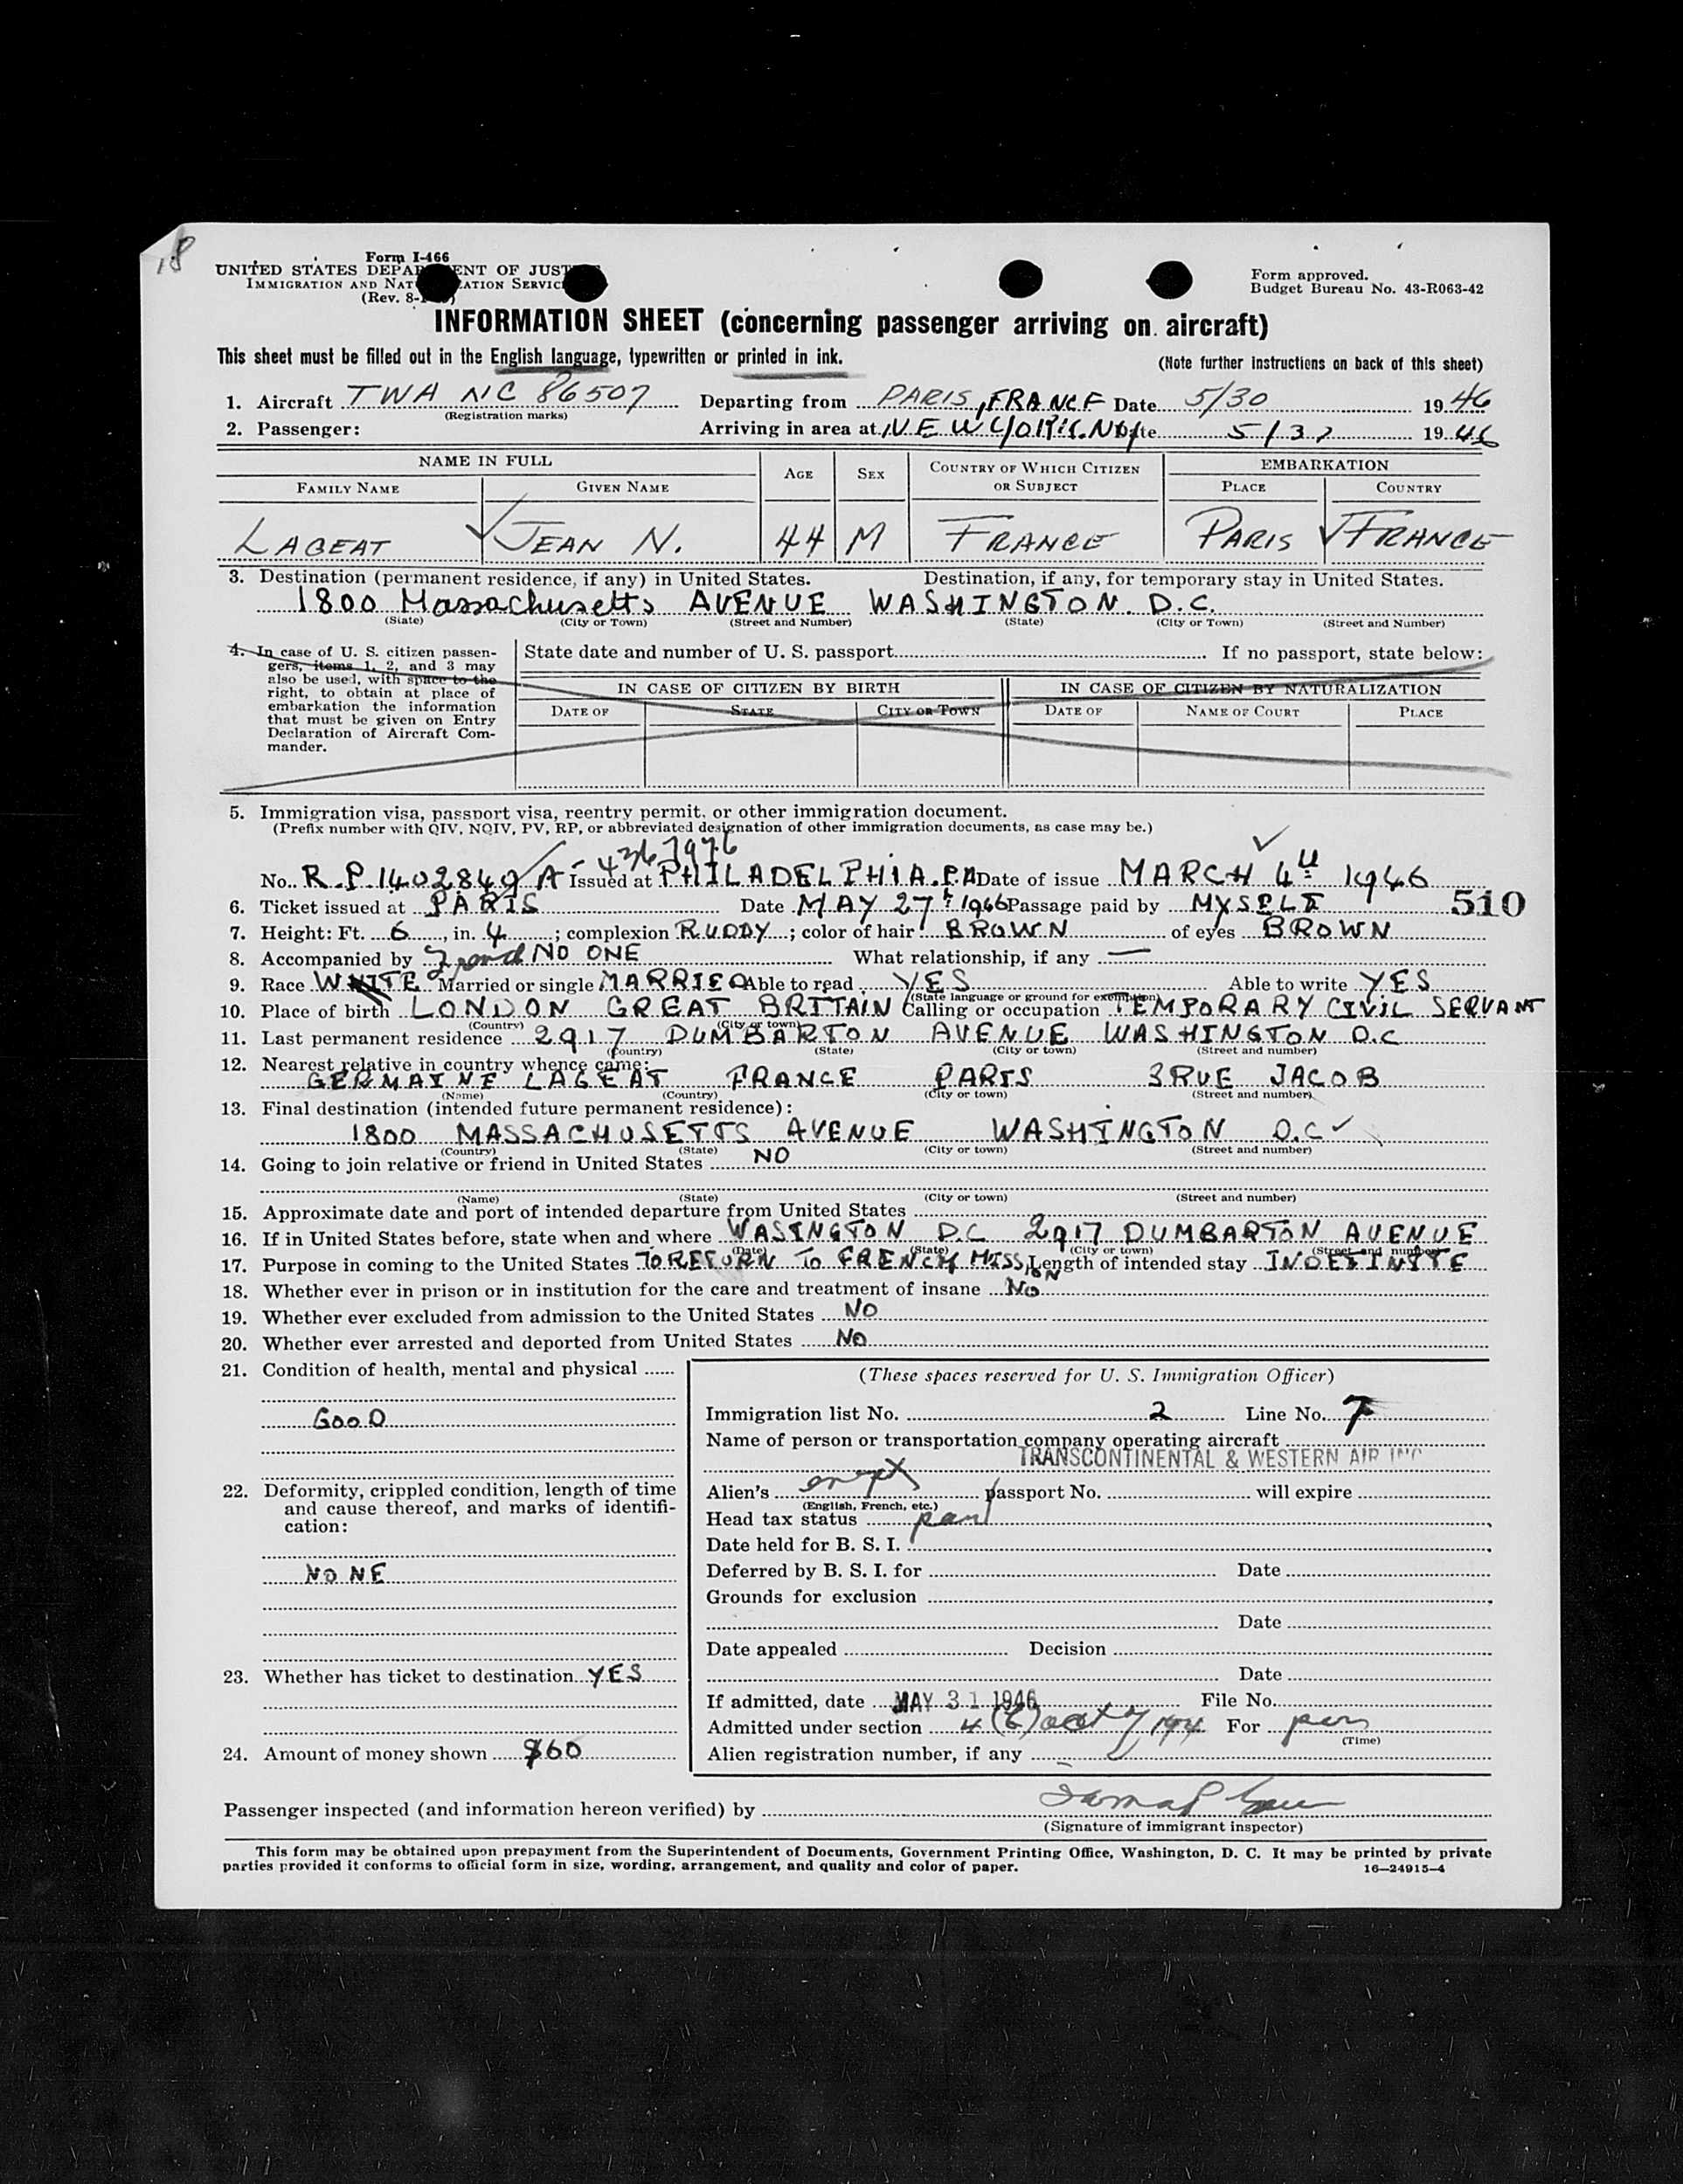 18
Form I-466
UNITED STATES DEPARTMENT OF JUSTICE
IMMIGRATION AND NATURALIZATION SERVICE
(Rev. 8-
Form approved.
Budget Bureau No. 43-R063-42
INFORMATION SHEET (concerning passenger arriving on aircraft)
This sheet must be filled out in the English language, typewritten or printed in ink. (Note further instructions on back of this sheet)
1. Aircraft TWA NC 86507 Departing from PARIS, FRANCE Date 5/30 1946
(Registration marks)
2. Passenger: Arriving in area at NEW YORK. NY Date 5/31 1946
NAME IN FULL AGE SEX COUNTRY OF WHICH CITIZEN OR SUBJECT EMBARKATION
FAMILY NAME GIVEN NAME PLACE COUNTRY
LAGEAT JEAN N. 44 M FRANCE PARIS FRANCE
3. Destination (permanent residence, if any) in United States. Destination, if any, for temporary stay in United States.
1800 Massachusetts AVENUE WASHINGTON D.C.
(State) (City or Town) (Street and Number) (State) (City or Town) (Street and Number)
4. In case of U. S. citizen passengers, items 1, 2, and 3 may also be used, with space to the right, to obtain at place of embarkation the information that must be given on Entry Declaration of Aircraft Commander.
State date and number of U. S. passport If no passport, state below:
IN CASE OF CITIZEN BY BIRTH IN CASE OF CITIZEN BY NATURALIZATION
DATE OF STATE CITY OR TOWN DATE OF NAME OF COURT PLACE
5. Immigration visa, passport visa, reentry permit, or other immigration document.
(Prefix number with QIV, NQIV, PV, RP, or abbreviated designation of other immigration documents, as case may be.)
A-4367976
No. R.P. 1402849 Issued at PHILADELPHIA.PA Date of issue MARCH 4th 1946
510
6. Ticket issued at PARIS Date MAY 27th 1946 Passage paid by MYSELF
7. Height: Ft. 6, in. 4; complexion RUDDY; color of hair BROWN of eyes BROWN
8. Accompanied by NO ONE What relationship, if any —
9. Race WHITE Married or single MARRIED Able to read YES Able to write YES
(State language or ground for exemption)
10. Place of birth LONDON GREAT BRITAIN Calling or occupation TEMPORARY CIVIL SERVANT
(Country) (City or town)
11. Last permanent residence 2917 DUMBARTON AVENUE WASHINGTON D.C
(Country) (State) (City or town) (Street and number)
12. Nearest relative in country whence came:
GERMAINE LAGEAT FRANCE PARIS 3 RUE JACOB
(Name) (Country) (City or town) (Street and number)
13. Final destination (intended future permanent residence):
1800 MASSACHUSETTS AVENUE WASHINGTON D.C
(Country) (State) (City or town) (Street and number)
14. Going to join relative or friend in United States NO
(Name) (State) (City or town) (Street and number)
15. Approximate date and port of intended departure from United States
16. If in United States before, state when and where WASINGTON D.C 2917 DUMBARTON AVENUE
(Date) (State) (City or town) (Street and number)
17. Purpose in coming to the United States TO RETURN TO FRENCH MISSION Length of intended stay INDEFINITE
18. Whether ever in prison or in institution for the care and treatment of insane NO
19. Whether ever excluded from admission to the United States NO
20. Whether ever arrested and deported from United States NO
21. Condition of health, mental and physical
GOOD
22. Deformity, crippled condition, length of time and cause thereof, and marks of identification:
NONE
23. Whether has ticket to destination YES
24. Amount of money shown $60
(These spaces reserved for U. S. Immigration Officer)
Immigration list No. 2 Line No. 7
Name of person or transportation company operating aircraft
TRANSCONTINENTAL & WESTERN AIR INC
Alien's passport No. will expire
(English, French, etc.)
Head tax status
Date held for B. S. I.
Deferred by B. S. I. for Date
Grounds for exclusion
Date
Date appealed Decision
Date
If admitted, date MAY 31 1946 File No.
Admitted under section 4 (b) act of 1924 For
(Time)
Alien registration number, if any
Passenger inspected (and information hereon verified) by
(Signature of immigrant inspector)
This form may be obtained upon prepayment from the Superintendent of Documents, Government Printing Office, Washington, D. C. It may be printed by private
parties provided it conforms to official form in size, wording, arrangement, and quality and color of paper. 16—24915-4